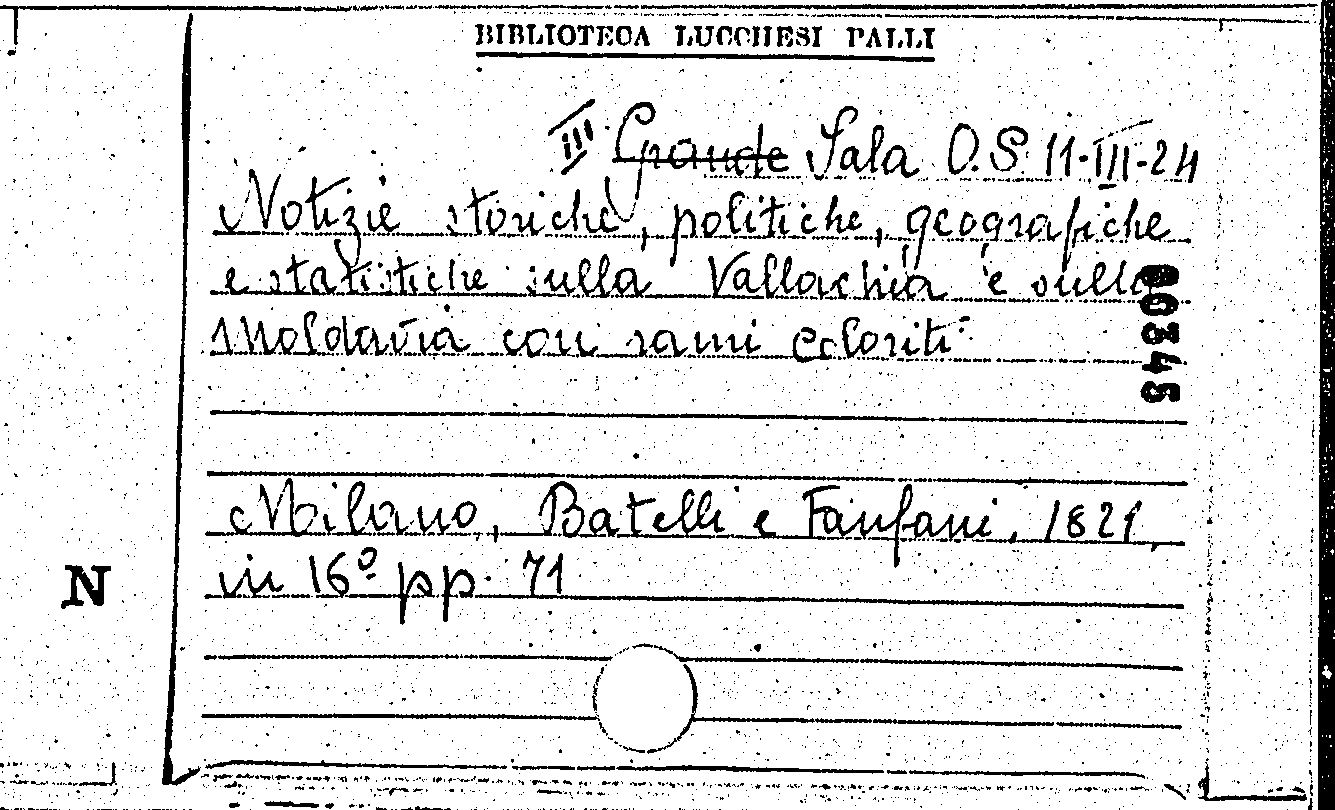 BIBLIOTECA LUCCHESI PALLI
III Grande Sala O.S. 11-III-24
Notizie storiche, politiche, geografiche
e statistiche sulla Vallachia e sulla
Moldavia con rami coloriti
00345
Milano, Batelli e Fanfani, 1821,
in 16º pp. 71
N